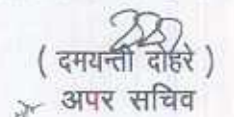 ( दमयन्ती दोहरे )
अपर सचिव